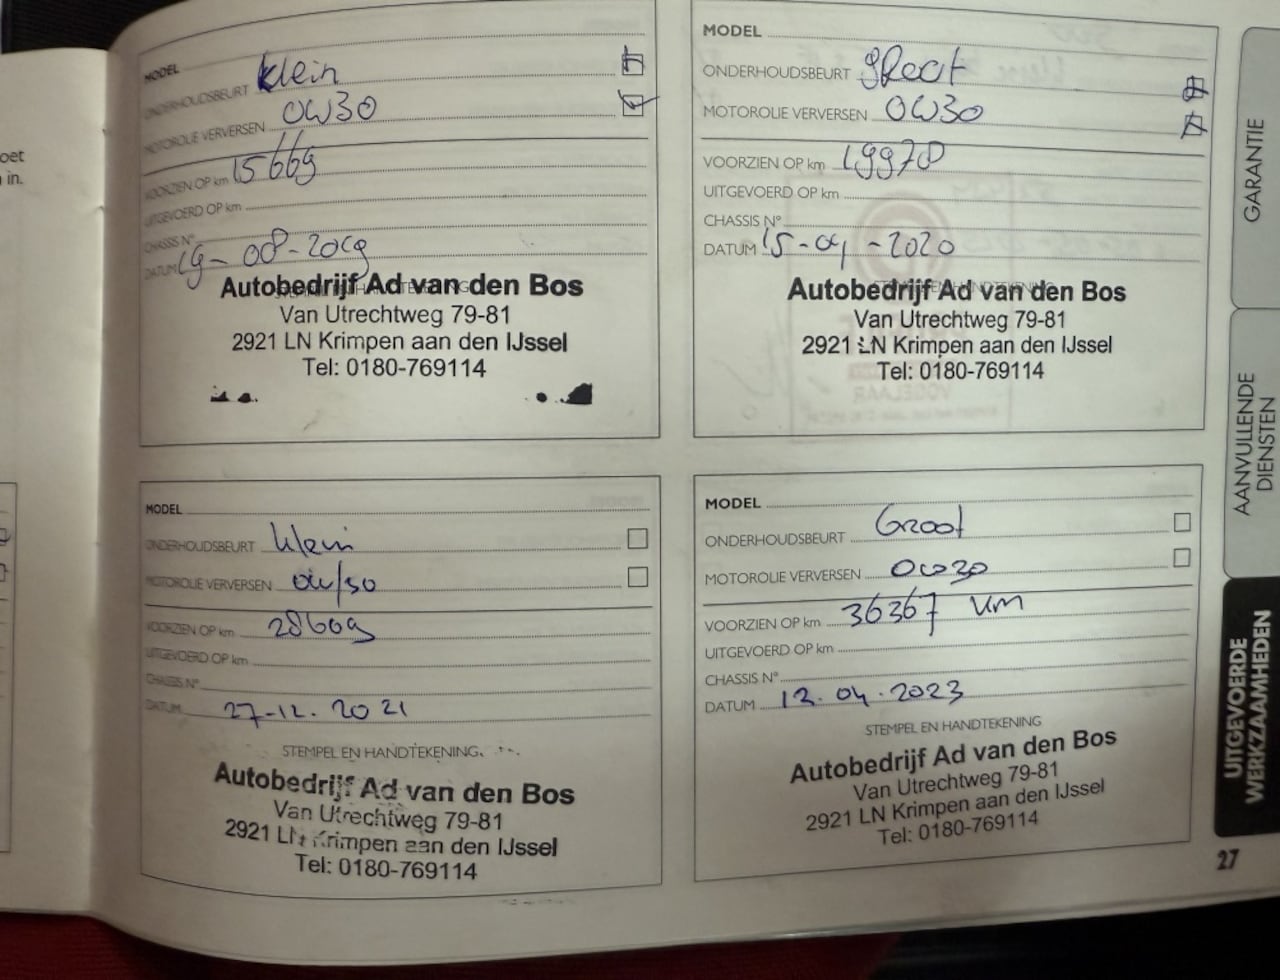 oet
in.
MODEL
ONDERHOUDSBEURT klein
MOTOROLIE VERVERSEN 0W30
VOORZIEN OP km 15669
UITGEVOERD OP km
CHASSIS N°
DATUM 19-08-2019
STEMPEL EN HANDTEKENING
Autobedrijf Ad van den Bos
Van Utrechtweg 79-81
2921 LN Krimpen aan den IJssel
Tel: 0180-769114
MODEL
ONDERHOUDSBEURT groot
MOTOROLIE VERVERSEN 0W30
VOORZIEN OP km 19970
UITGEVOERD OP km
CHASSIS N°
DATUM 15-04-2020
STEMPEL EN HANDTEKENING
Autobedrijf Ad van den Bos
Van Utrechtweg 79-81
2921 LN Krimpen aan den IJssel
Tel: 0180-769114
MODEL
ONDERHOUDSBEURT klein
MOTOROLIE VERVERSEN 0W/30
VOORZIEN OP km 28609
UITGEVOERD OP km
CHASSIS N°
DATUM 27-12.2021
STEMPEL EN HANDTEKENING
Autobedrijf Ad van den Bos
Van Utrechtweg 79-81
2921 LN Krimpen aan den IJssel
Tel: 0180-769114
MODEL
ONDERHOUDSBEURT Groot
MOTOROLIE VERVERSEN 0W30
VOORZIEN OP km 36367 km
UITGEVOERD OP km
CHASSIS N°
DATUM 12.04.2023
STEMPEL EN HANDTEKENING
Autobedrijf Ad van den Bos
Van Utrechtweg 79-81
2921 LN Krimpen aan den IJssel
Tel: 0180-769114
GARANTIE
AANVULLENDE
DIENSTEN
UITGEVOERDE
WERKZAAMHEDEN
27